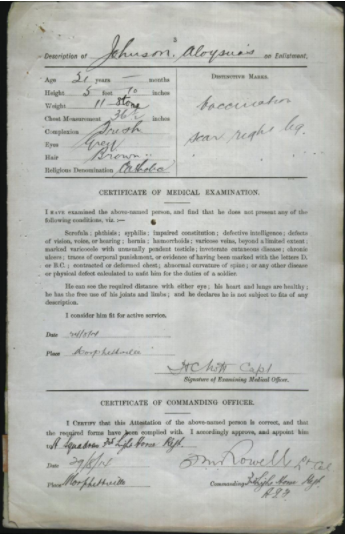 3
Description of Johnson, Aloysius on Enlistment.
Age 21 years — months
Height 5 feet 10 inches
Weight 11 Stone
Chest Measurement 36½ inches
Complexion
Eyes Grey
Hair Brown
Religious Denomination Catholic
DISTINCTIVE MARKS.
Vaccination
scar right leg.
CERTIFICATE OF MEDICAL EXAMINATION.
I HAVE examined the above-named person, and find that he does not present any of the
following conditions, viz. :—
Scrofula; phthisis; syphilis; impaired constitution; defective intelligence; defects
of vision, voice, or hearing; hernia; hæmorrhoids; varicose veins, beyond a limited extent;
marked varicocele with unusually pendent testicle; inveterate cutaneous disease; chronic
ulcers; traces of corporal punishment, or evidence of having been marked with the letters D.
or B.C.; contracted or deformed chest; abnormal curvature of spine; or any other disease
or physical defect calculated to unfit him for the duties of a soldier.
He can see the required distance with either eye; his heart and lungs are healthy;
he has the free use of his joints and limbs; and he declares he is not subject to fits of any
description.
I consider him fit for active service.
Date
Place Morphettville
Capt
Signature of Examining Medical Officer.
CERTIFICATE OF COMMANDING OFFICER.
I CERTIFY that this Attestation of the above-named person is correct, and that
the required forms have been complied with. I accordingly approve, and appoint him
to A Squadron 3d Light Horse Regt.
Date
Rowell Lt Col
Place Morphettville
Commanding 3d Light Horse Regt
A.I.F.